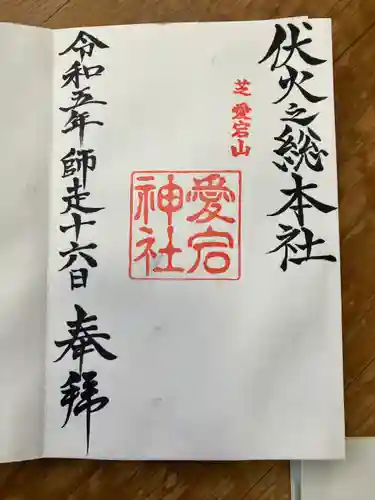 伏火之総本社
芝 愛宕山
愛宕
神社
令和五年 師走十六日 奉拜